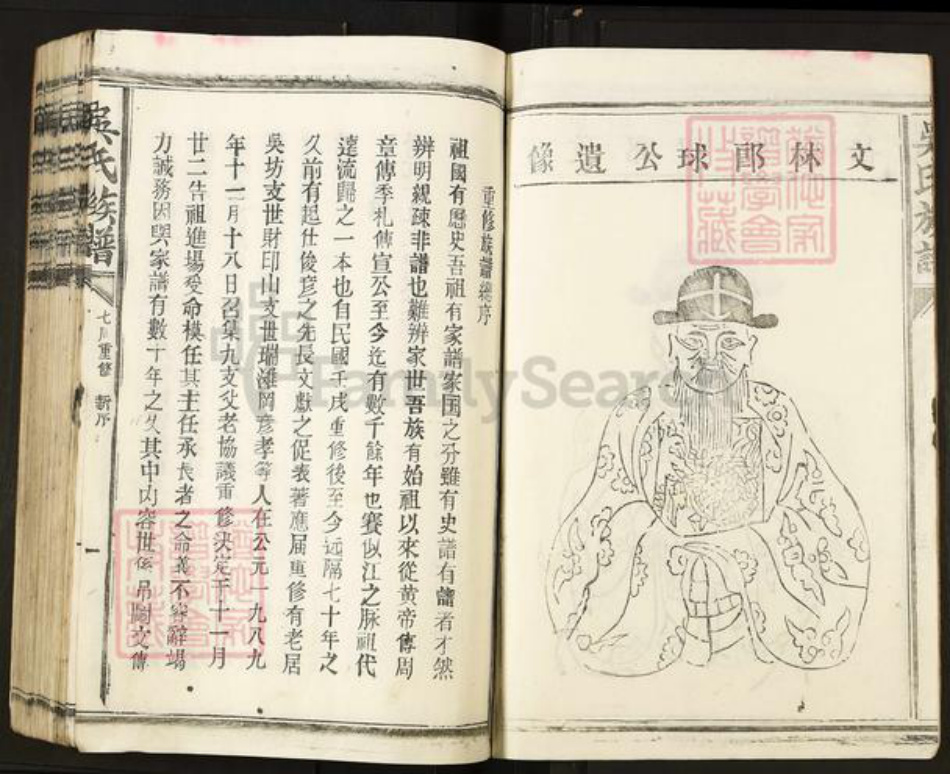 文林郎球公遺像
重修族譜總序
祖國有歷史吾祖有家譜家國之分雖有史譜有譜者才然
辨明親疎非譜也難辨家世吾族有始祖以來從黃帝傳周
章傳季札傳宣公至今迄有數千餘年也賽似江之脉祖代
遠流歸之一本也自民國壬戌重修後至今远隔七十年之
久前有起仕俊彦之先長文獻之促表著應届重修有老居
吳坊支世財印山支世瑞灘岡彦孝等人在公元一九八九
年十二月十八日召集九支父老協議重修決定于十一月
廿二告祖進場受命模任其主任承長者之命義不容辭竭
力誠務因與家譜有數十年之久其中内容世係吊圖文傳
吳氏族譜
七周重修
新序
一
吳氏族譜
FamilySearch